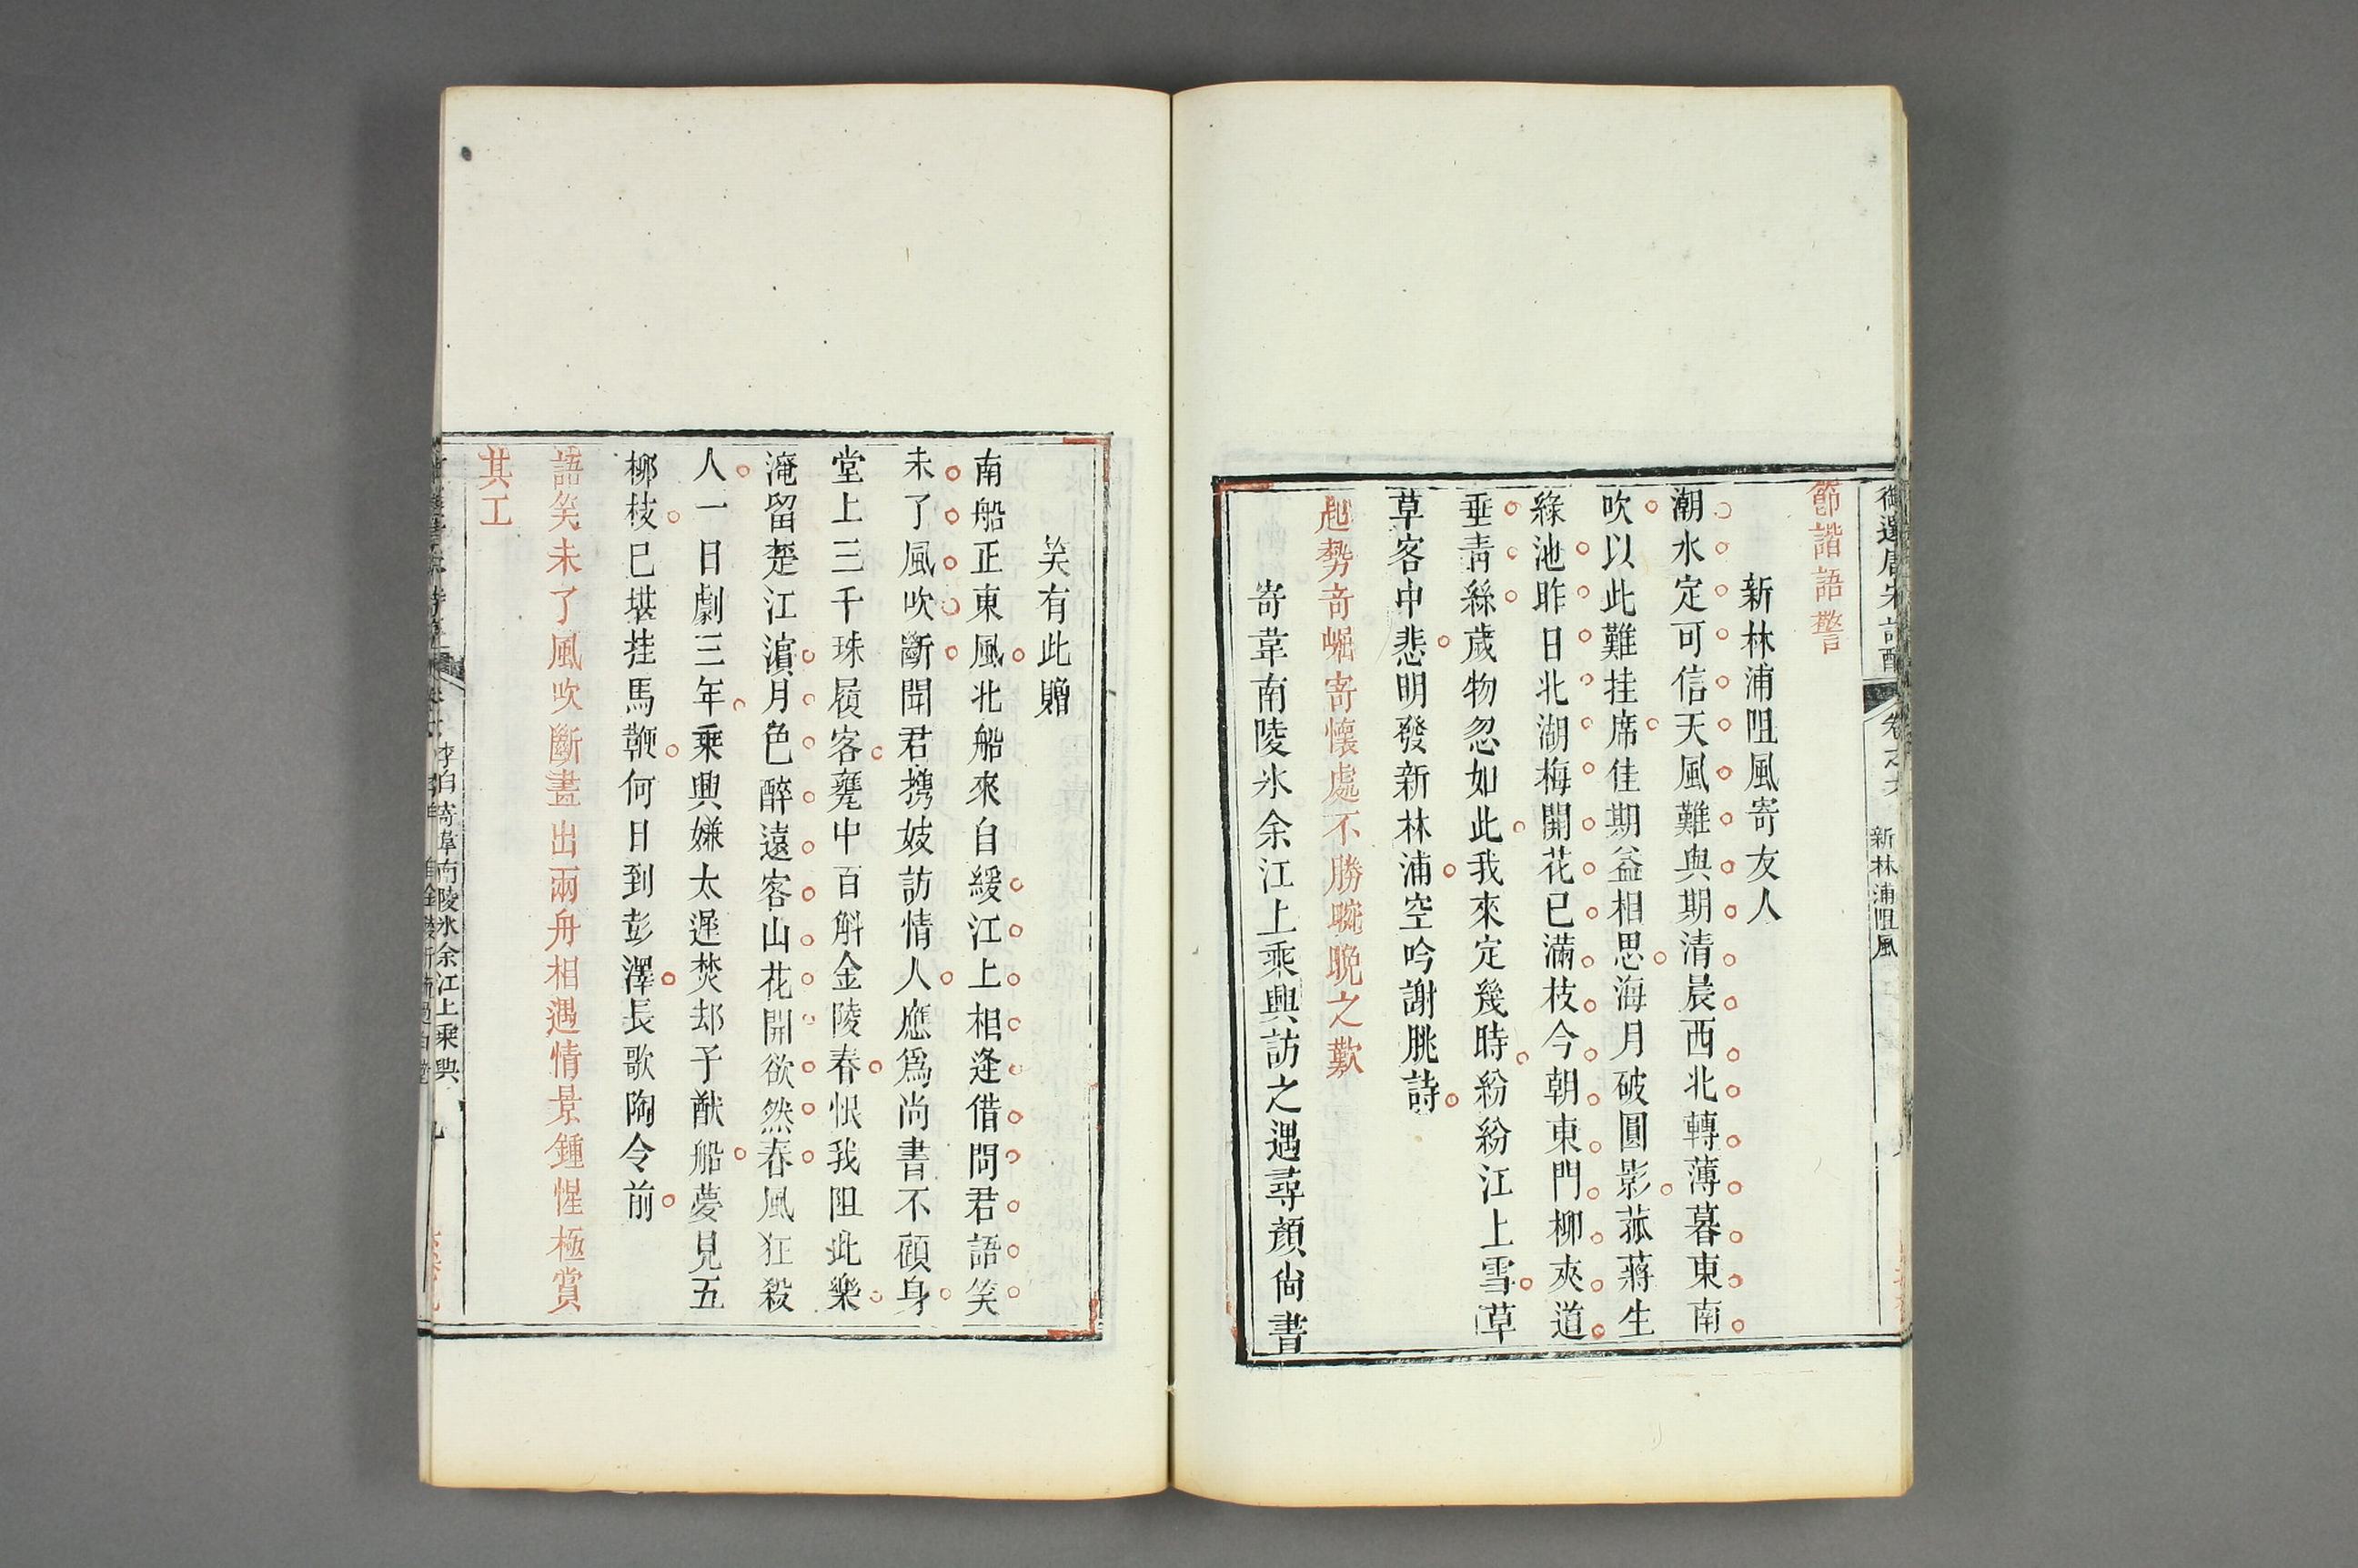 御選唐宋詩醇 卷之六 新林浦阻風
節諧語警
新林浦阻風寄友人
潮水定可信天風難與期清晨西北轉薄暮東南
吹以此難挂席佳期益相思海月破圓影菰蔣生
綠池昨日北湖梅開花已滿枝今朝東門柳夾道
垂靑絲歲物忽如此我來定幾時紛紛江上雪草
草客中悲明發新林浦空吟謝朓詩
起勢奇崛寄懷處不勝畹晚之歎
寄韋南陵氷余江上乘興訪之遇尋顏尙書
笑有此贈
南船正東風北船來自緩江上相逢借問君語笑
未了風吹斷聞君攜妓訪情人應爲尚書不顧身
堂上三千珠履客甕中百斛金陵春恨我阻此樂
淹留楚江濵月色醉遠客山花開欲然春風狂殺
人一日劇三年乗興嫌太遲焚却子猷船夢見五
柳枝已堪挂馬鞭何日到彭澤長歌陶令前
語笑未了風吹斷畫出兩舟相遇情景鍾惺極賞
其工
李白 寄韋南陵氷余江上乘興 九